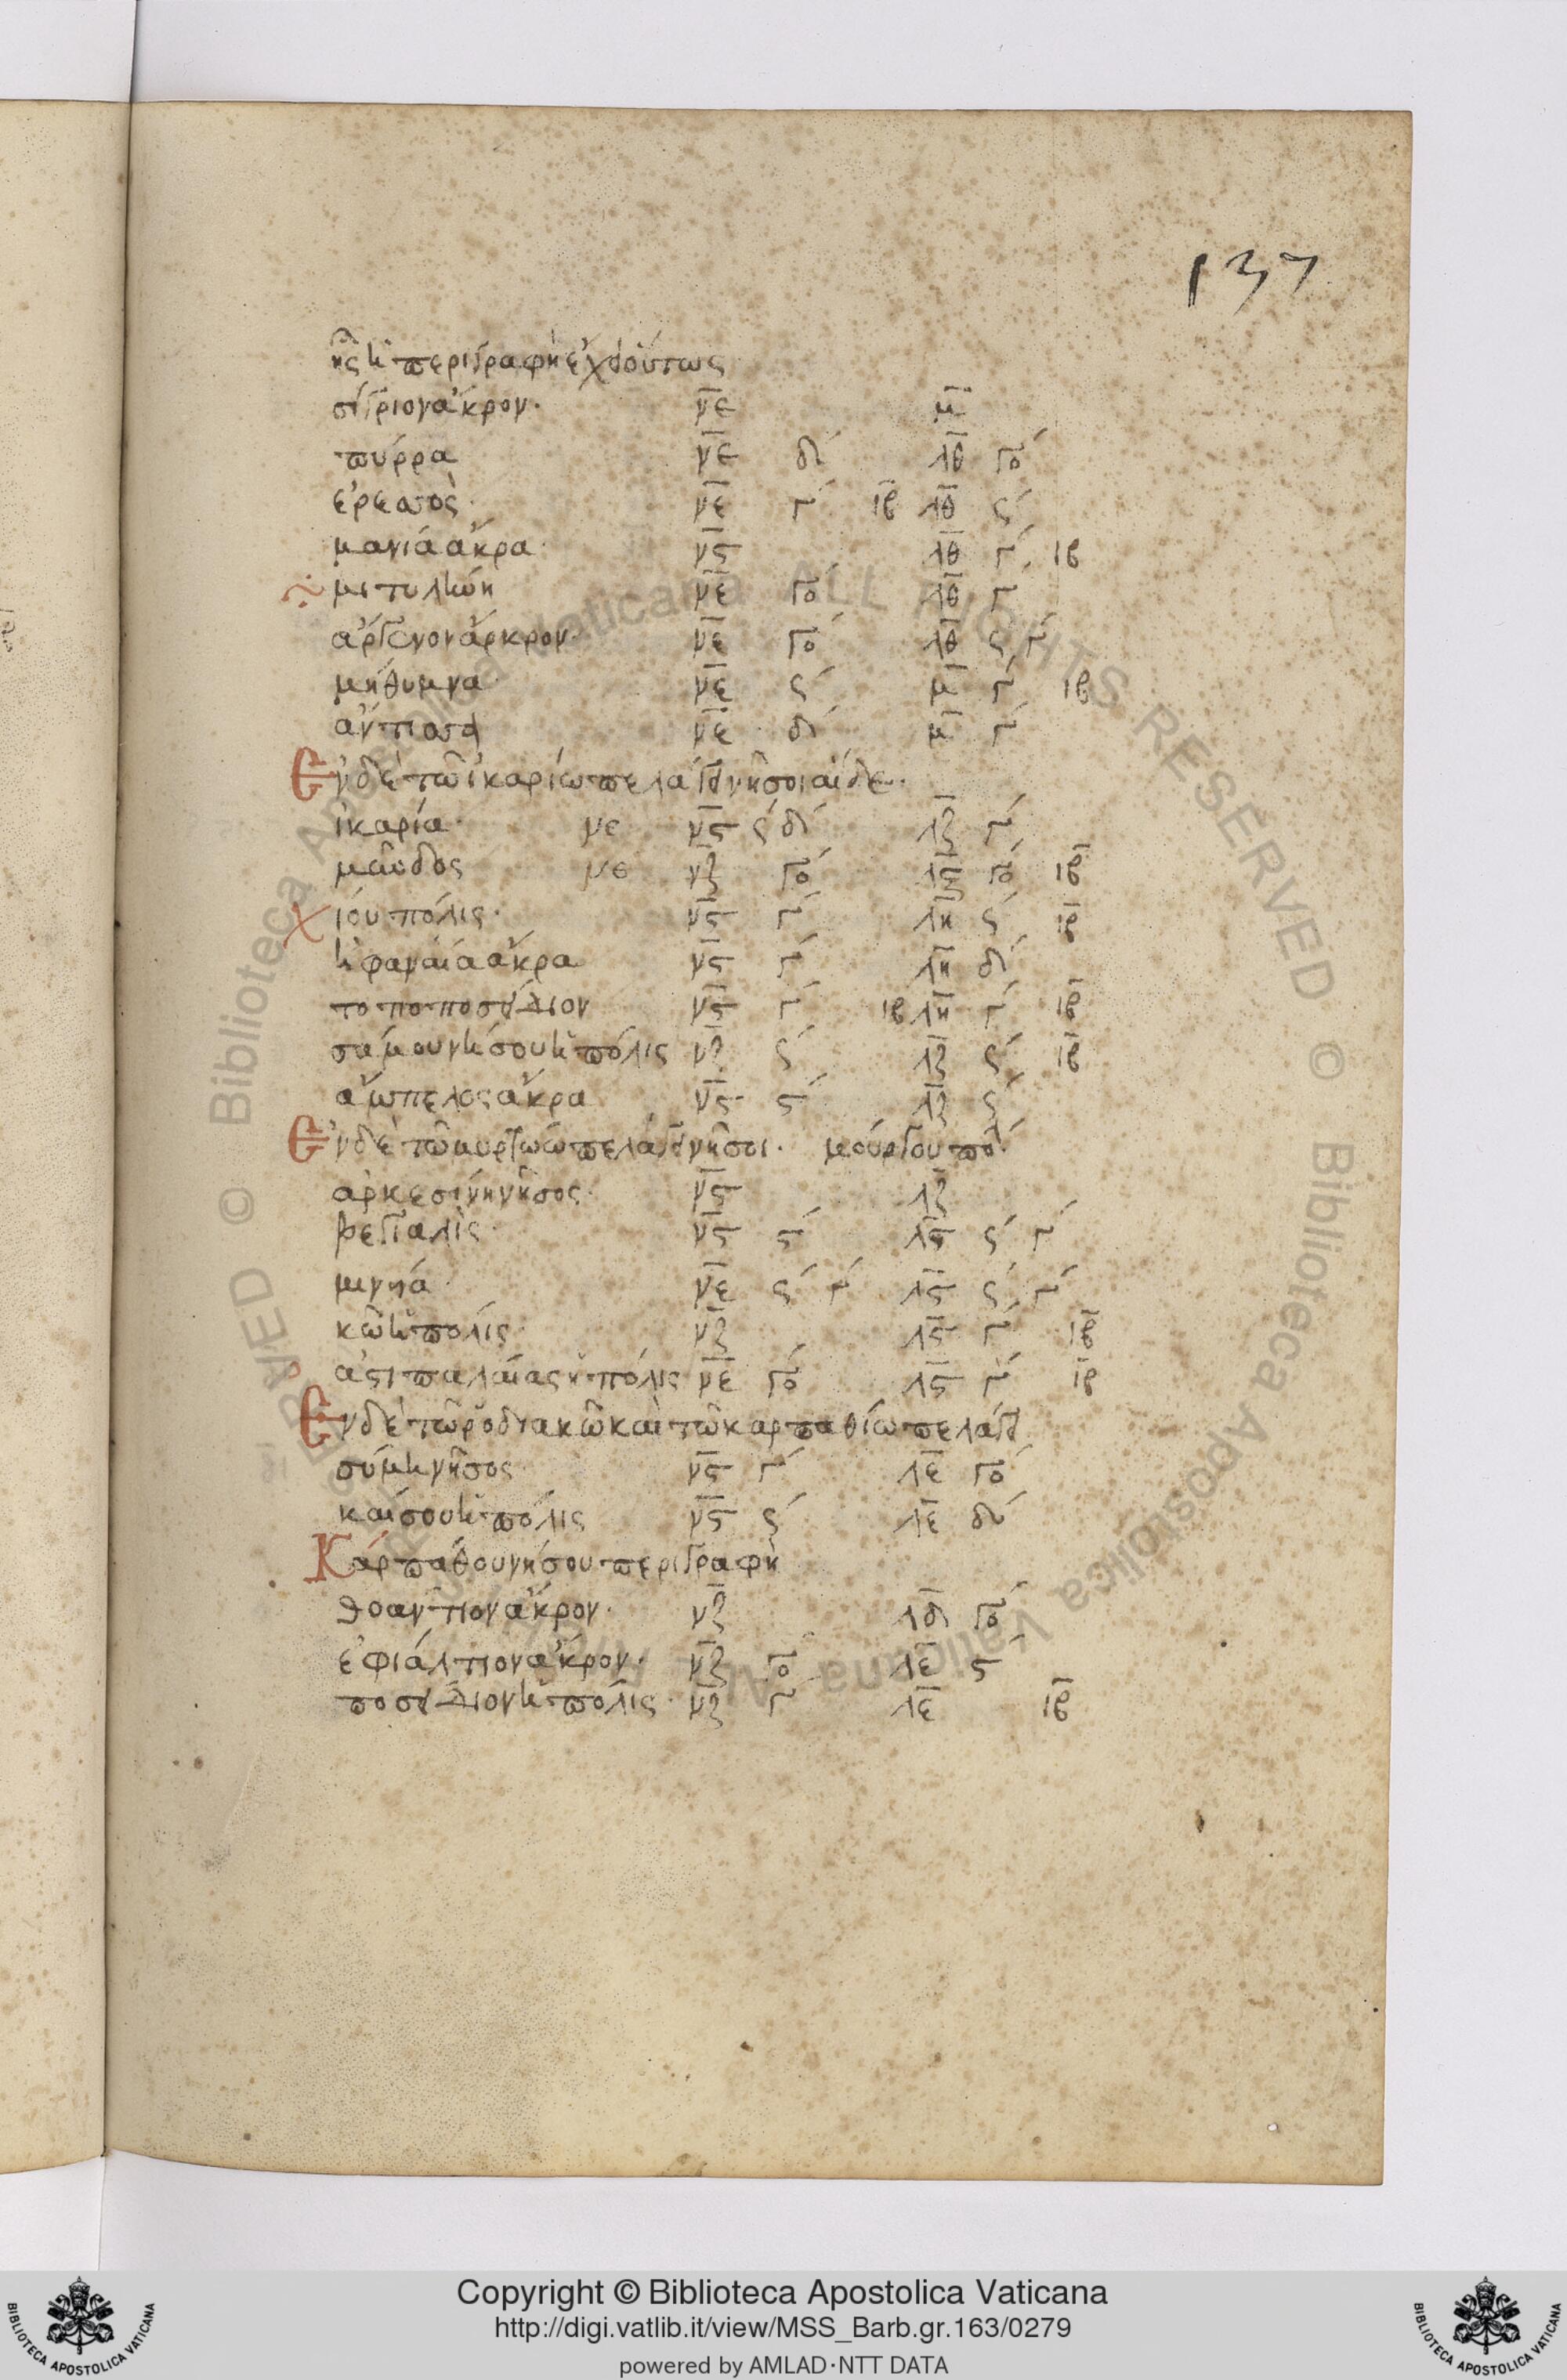 137
ἧς ἡ περιγραφὴ ἔχει οὕτως
σίγριον ἄκρον· νε μ
πύρρα νε δ´ λθ γο´
ἐρεσσὸς· νε γ´ ιβ λθ ς´
μανία ἄκρα· νς λθ γ´ ιβ
μιτυλήνη νε γο´ λθ γ
ἀργενον ἄρκρον· νε γο´ λθ ς γ´
μήθυμνα νε ς´ μ γ´ ιβ
ἄντισσα νε δ´ μ γ´
Ἐν δὲ τῶ ἰκαρίω πελάγει νῆσοι αἵδε·
ἰκαρία· νε νς ς´ δ´ λζ γ´
νε νζ γο´ λς γο´ ιβ
χίου πόλις· νς γ´ λη ς´ ιβ
ἡ φαναία ἄκρα νς γ´ λη δ´
το πο ποσείδιον νς γ´ ιβ λη γ´ ιβ
σάμου νήσου ἡ πόλις νζ ς´ λζ ς´ ιβ
ἄμπελος ἄκρα νς ς´ λζ ς´
Ἐν δὲ τῶ μυρτώω πελάγει νῆσοι·
ἀρκεσίνη νῆσος· νς λζ
βεγιαλὶς· νς ς´ λς ς´ γ´
μινηά· νε ς´ γ´ λς ς´ γ´
κῶ ἡ πόλις· νζ λς γ´ ιβ
ἀστιπαλαίας ἡ πόλις νε γο´ λς γ´ ιβ
Ἐν δὲ τῶ ῥοδιακῶ καὶ τῶ καρπαθίω πελάγει
σύμη νῆσος· νς γ´ λε γο´
καίσου ἡ πόλις νς ς´ λε δ´
Κάρπάθου νήσου περιγραφὴ
θοάντιον ἄκρον· νζ λδ γο´
ἐφιάλτιον ἄκρον· νζ γο´ λε ς´
ποσείδιον ἡ πόλις· νζ γ´ λε ιβ
© Biblioteca Apostolica Vaticana ALL RIGHTS RESERVED
Copyright © Biblioteca Apostolica Vaticana
http://digi.vatlib.it/view/MSS_Barb.gr.163/0279
powered by AMLAD·NTT DATA
BIBLIOTECA APOSTOLICA VATICANA
BIBLIOTECA APOSTOLICA VATICANA